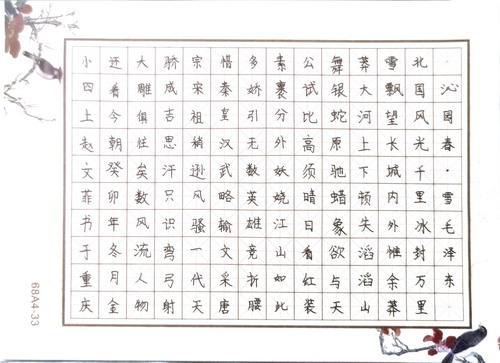 沁园春·雪毛泽东
北国风光千里冰封万里
雪飘望长城内外惟余莽
莽大河上下顿失滔滔山
舞银蛇原驰蜡象欲与天
公试比高须晴日看红装
素裹分外妖娆江山如此
多娇引无数英雄竞折腰
惜秦皇汉武略输文采唐
宗宋祖稍逊风骚一代天
骄成吉思汗只识弯弓射
大雕俱往矣数风流人物
还看今朝癸卯年冬月金
小四上赵文菲书于重庆
68A4-33